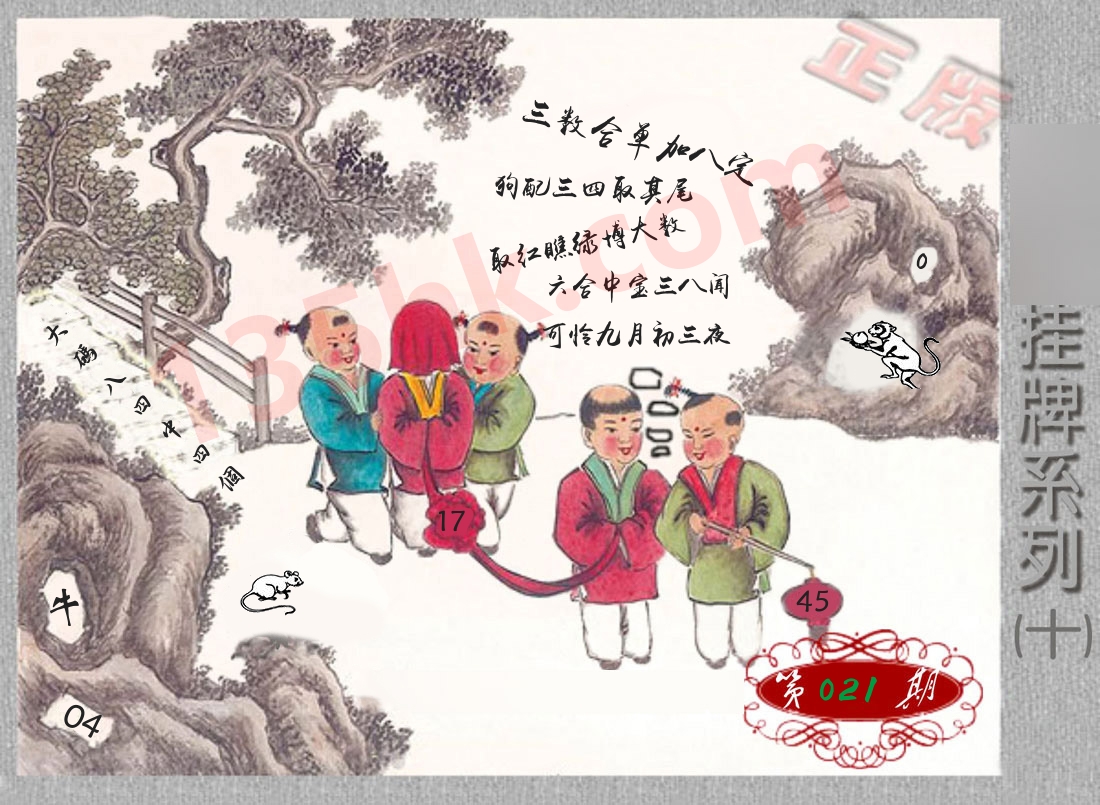 正版
三数合单加八定
狗配三四取其尾
取红瞧绿博大数
六合中宝三八闻
可怜九月初三夜
135hk.com
0
大码八四中四個
17
45
牛
04
第021期
挂牌系列(十)